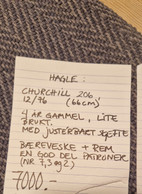 HAGLE:
CHURCHILL 206
12/76 (66cm)
4 ÅR GAMMEL, LITE
BRUKT.
MED JUSTERBART SKJEFTE
BÆREVESKE + REM
EN GOD DEL PATRONER
(NR. 7, 3 og 2)
7000.-